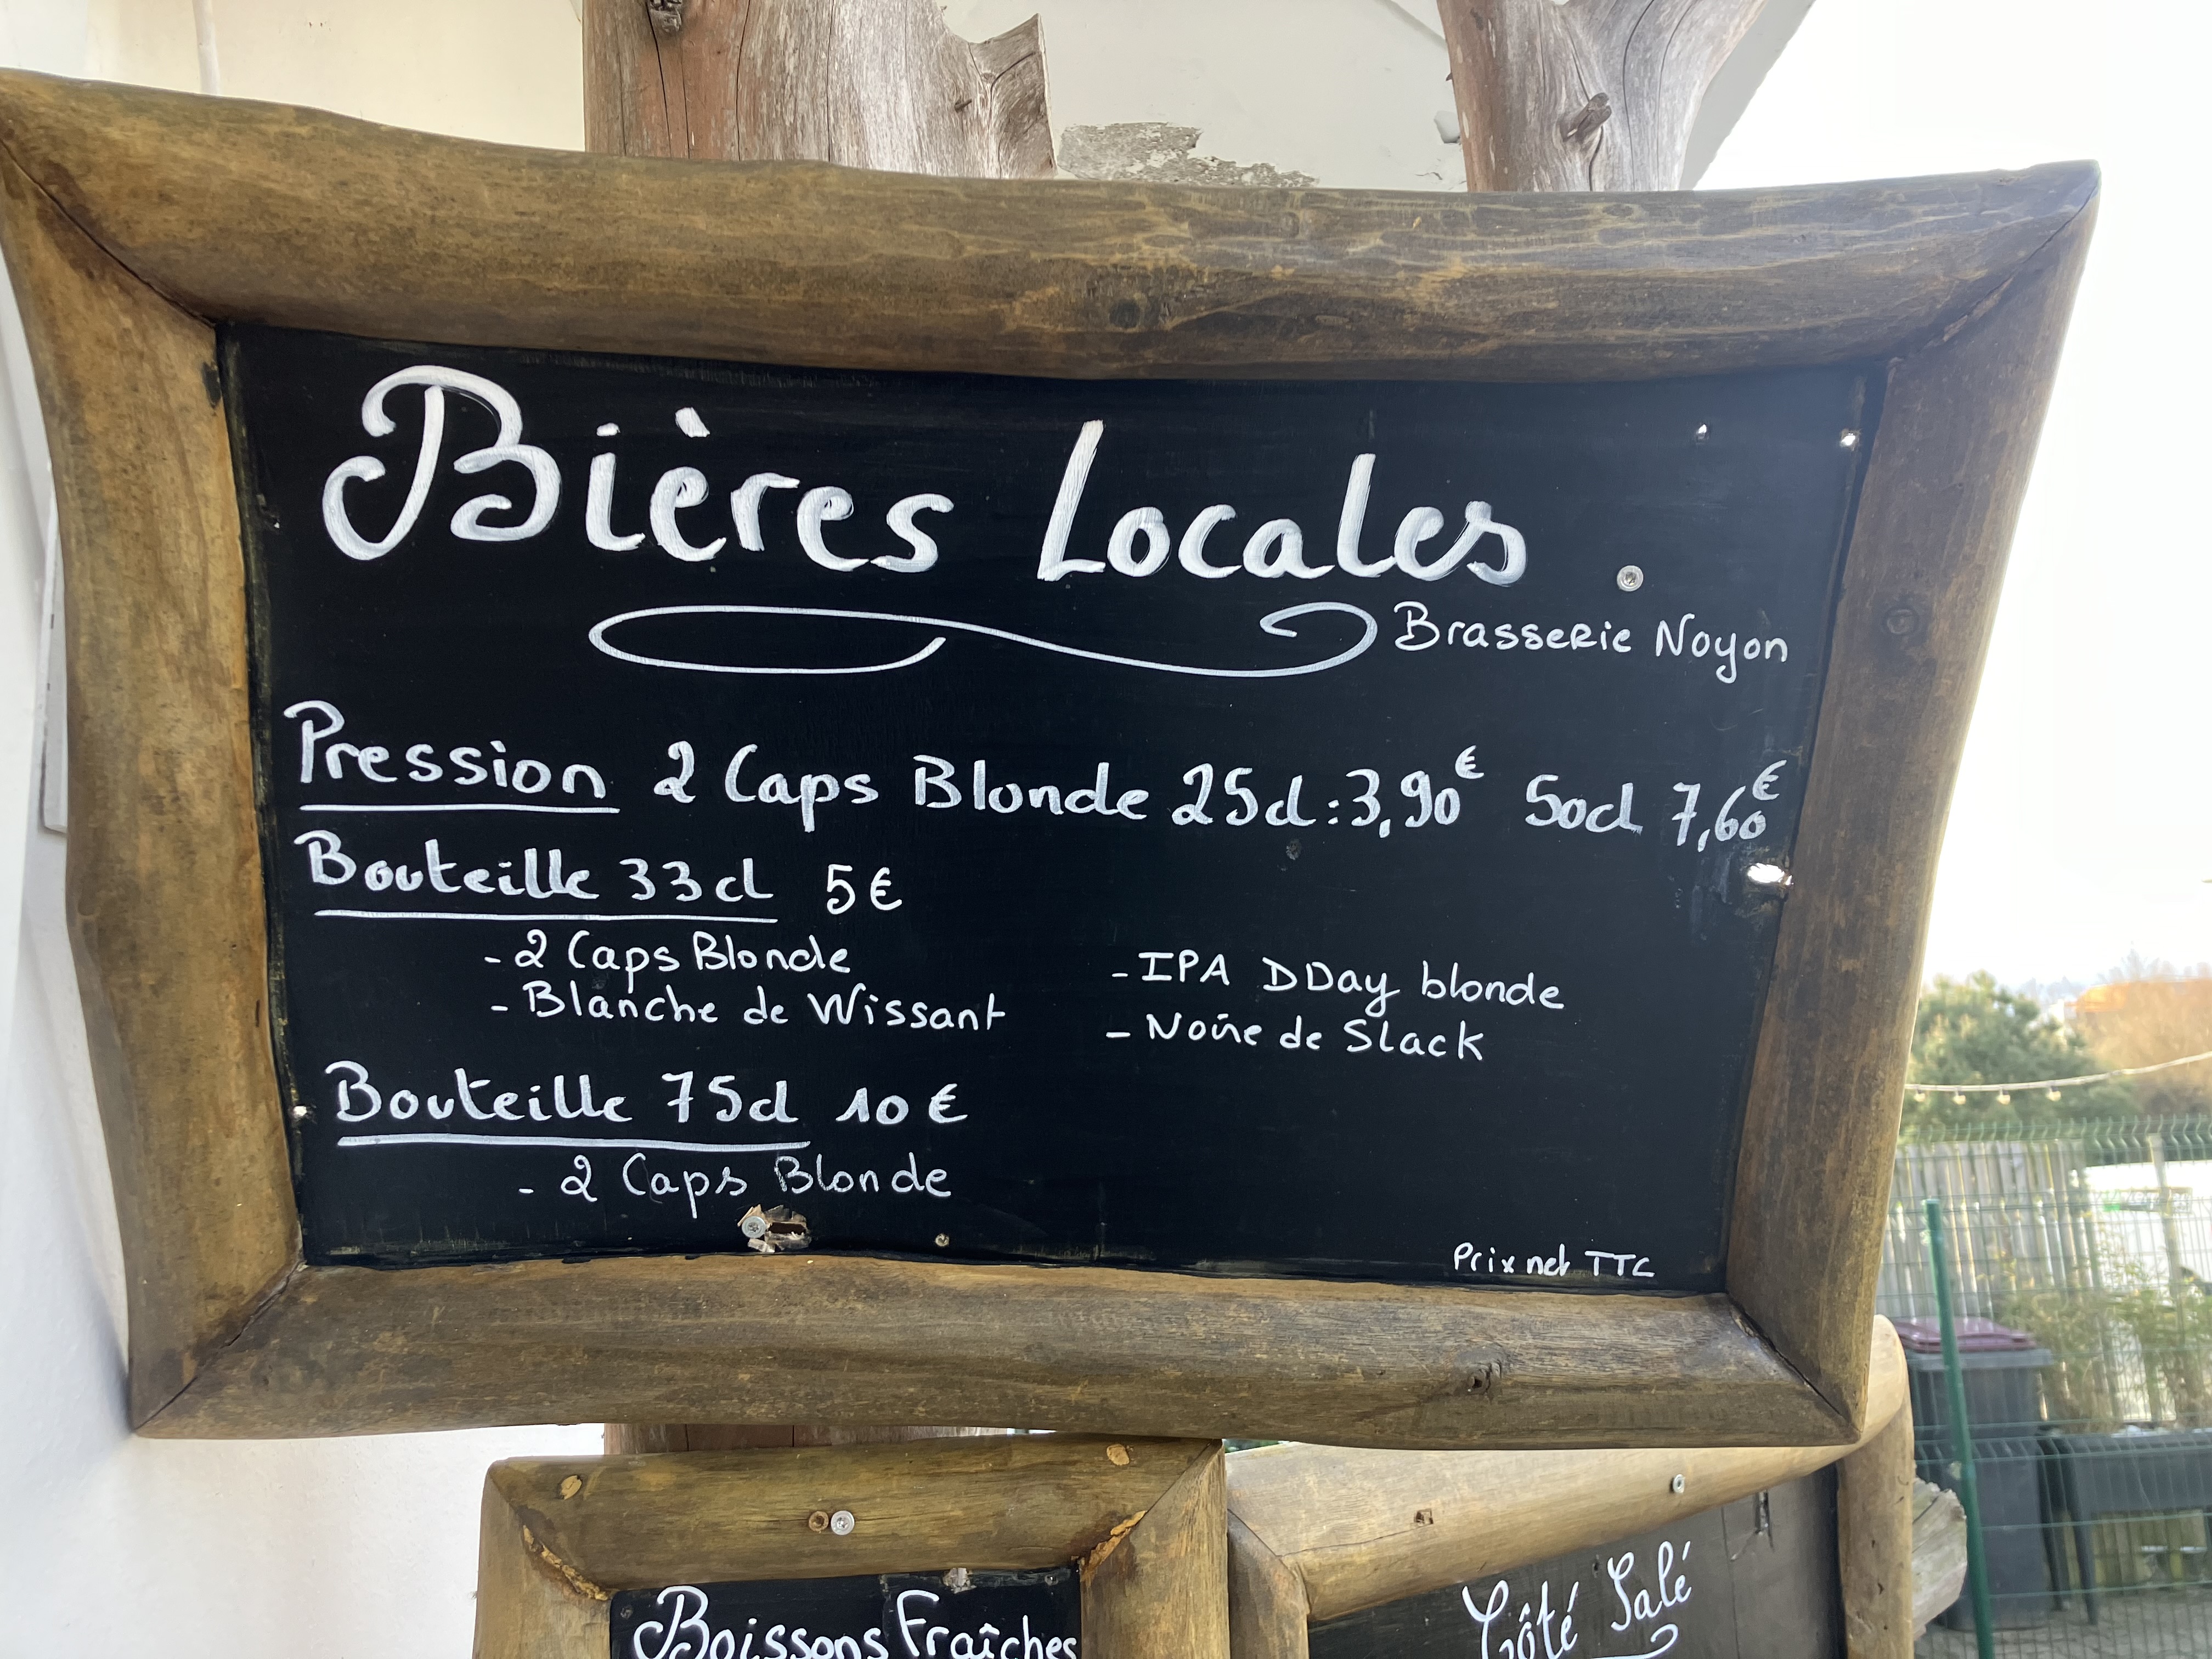 Bières Locales
Brasserie Noyon
Pression 2 Caps Blonde 25cl : 3,90€ 50cl 7,60€
Bouteille 33cl 5€
- 2 Caps Blonde
- Blanche de Wissant
- IPA DDay blonde
- Noire de Slack
Bouteille 75cl 10€
- 2 Caps Blonde
Prix net TTC
Boissons Fraîches
Côté Salé